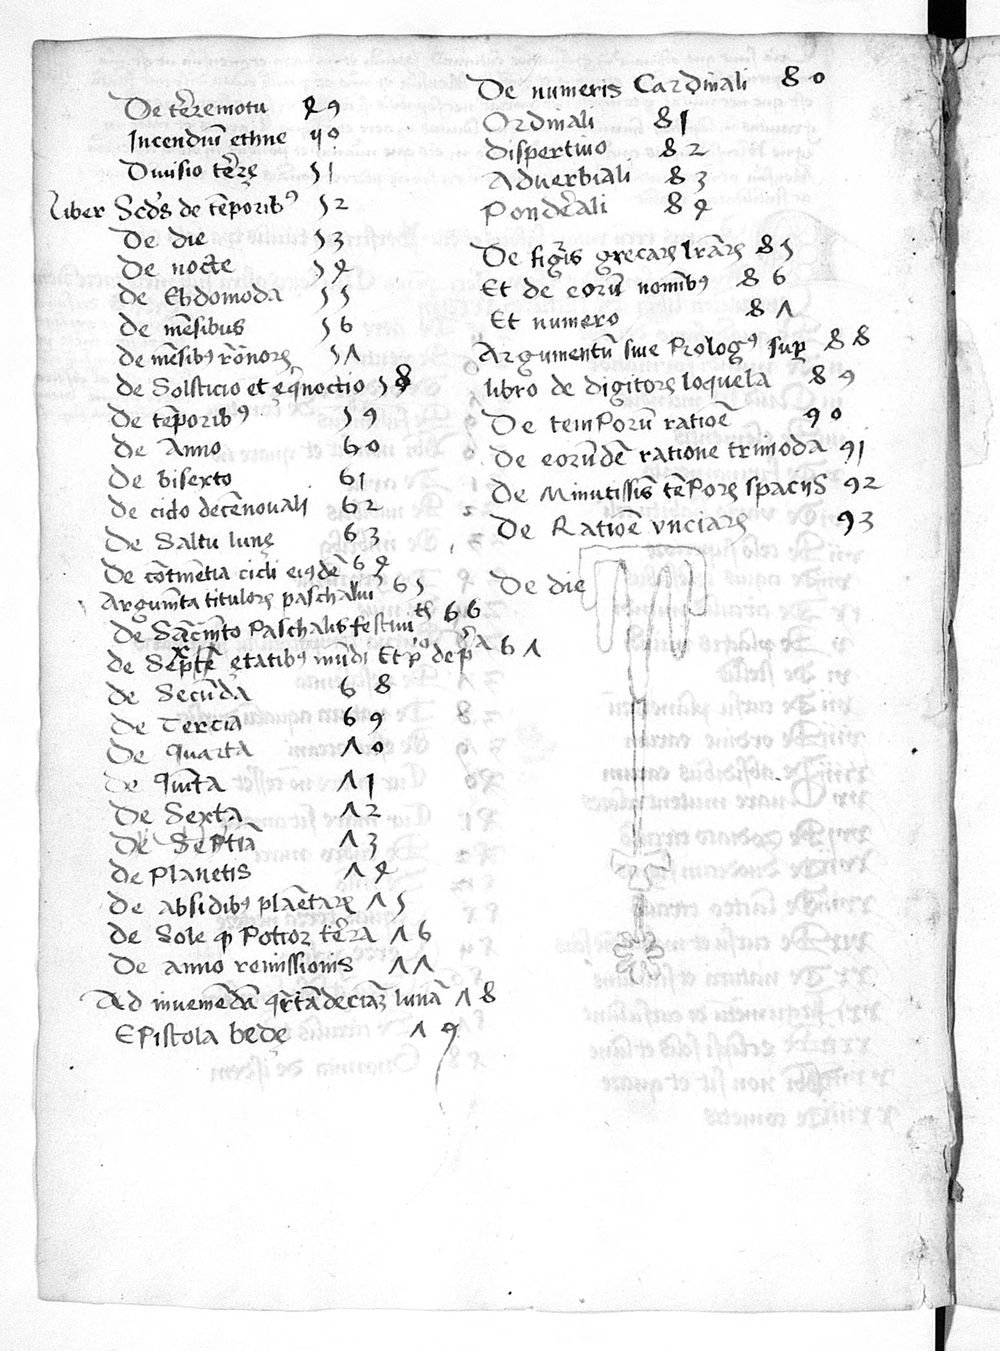 De tēremotu 49
Incendiū ethne 50
Diuisio tērę 51
Liber Scđs de tēporibꝰ 52
De die 53
De nocte 54
De Ebdomoda 55
De mēsibus 56
De mēsibꝰ rōnoꝝ 57
de Solsticio et eq̄noctio 58
De tēporibꝰ 59
De Anno 60
De bisexto 61
De ciclo decēnouali 62
De Saltu lunę
63
De cōtinētia cicli eiꝰdē 64
Argum̄ta tituloꝝ paschaliū 65
De Sacm̄to Paschalis festiui 66
de Septē ętatibꝰ mūdi Et p̄ᵒ de pᵃ 67
De Secūda 68
De Terciā 69
De Quarta 70
De Quīta 71
De Sexta 72
De Septīa 73
de Planetis 74
De absidibꝰ planētaꝝ 75
de Sole ꝙ Potior tērra 76
De anno remissionis 77
Ad inueniēdā qr̄tādeciāꝫ lunā 78
Epistola bedę 79
De numeris Cardinali 80
Ordinali 81
dispertiuo 82
Aduerbiali 83
Ponderali 84
De figīs grecaꝝ lrāꝝ 85
Et de eorū nomībꝰ 86
Et numero 87
Argumentū siue Prologꝰ suꝑ 88
libro de digitoꝝ loquela 89
De temporū ratioē 90
De eorūdē ratione trimoda 91
De Minutissīs tēporꝝ spacijs 92
De Ratioē vnciaꝝ 93
De die